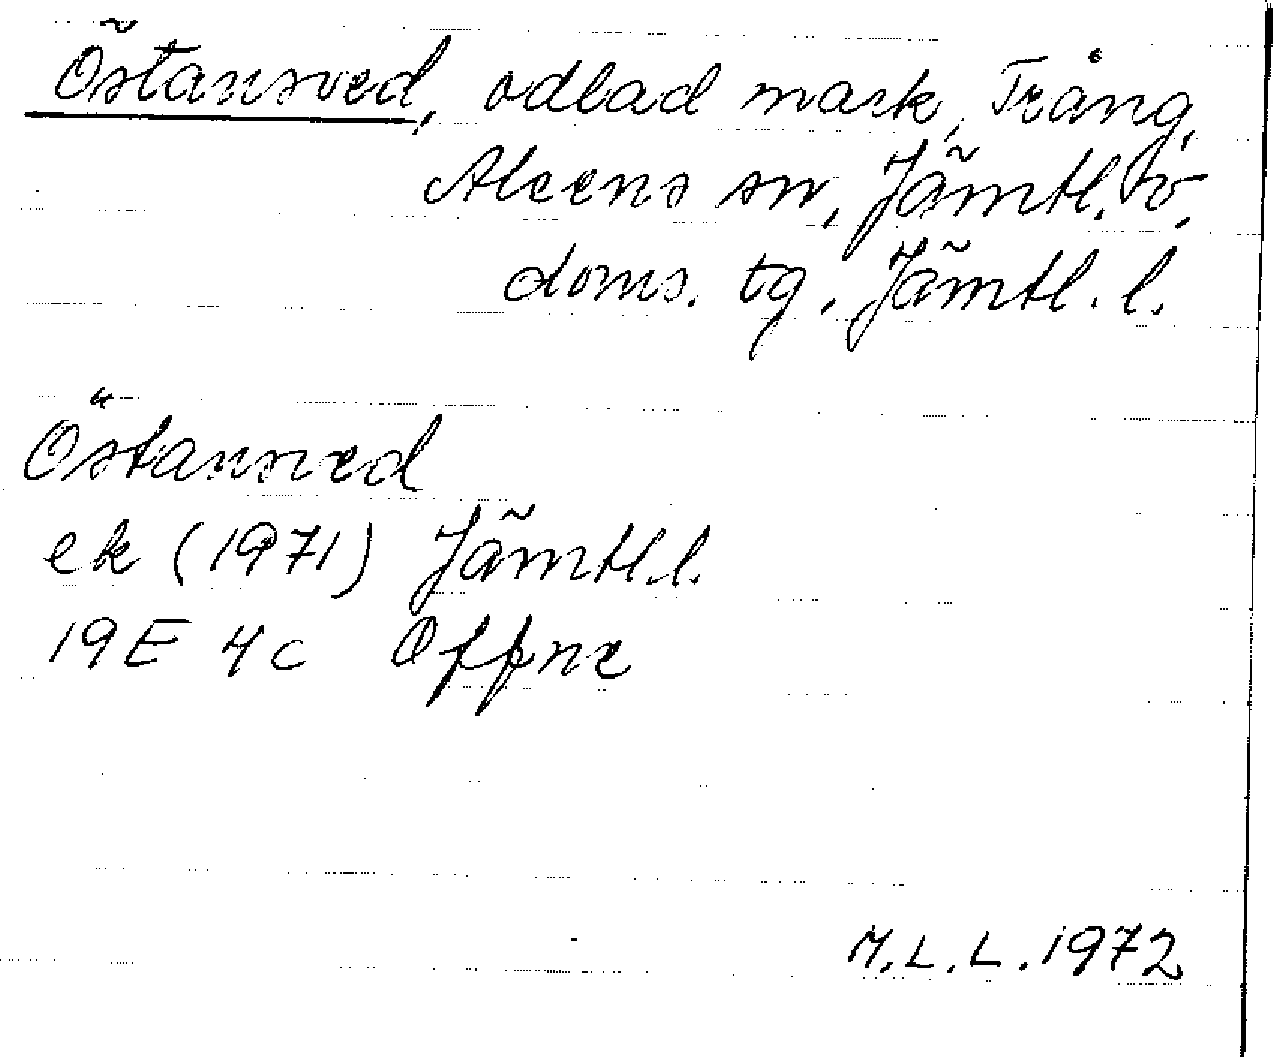 Östansved, odlad mark, Trång,
Alsens sn, Jämtl. v.
doms. tg, Jämtl. l.
Östansved
ek (1971) Jämtl. l.
19E 4c Offne
M.L.L. 1972